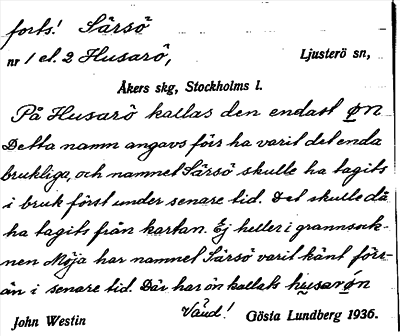 forts! Särsö
nr 1 el. 2 Husarö, Ljusterö sn,
Åkers skg, Stockholms l.
På Husarö kallas den endast øn
Detta namn angavs förr ha varit det enda
brukliga, och namnet Särsö skulle ha tagits
i bruk först under senare tid. Det skulle då
ha tagits från kartan. Ej heller i grannsock-
nen Möja har namnet Särsö varit känt förr-
än i senare tid. Där har ön kallats husarøn
Vänd!
John Westin Gösta Lundberg 1936.